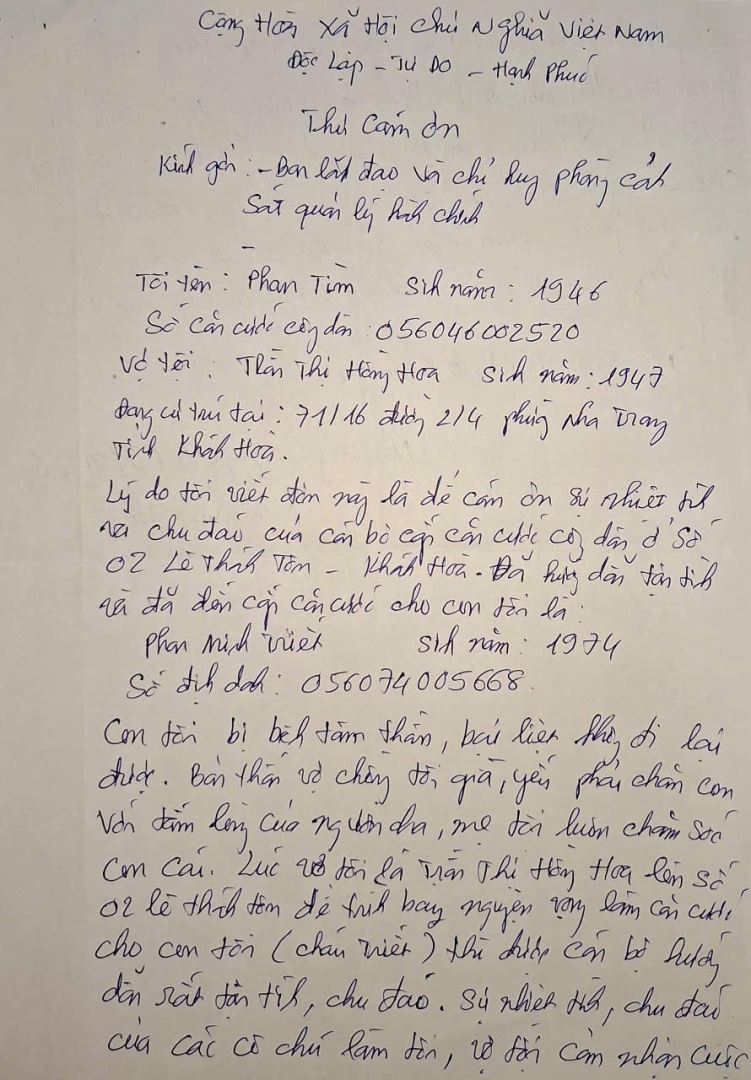 Cộng Hoà Xã Hội Chủ Nghĩa Việt Nam
Độc Lập - Tự Do - Hạnh Phúc
Thư Cám ơn
Kính gởi : - Ban lãnh đạo và chỉ huy phòng cảnh
Sát quản lý hành chính
-
Tôi tên : Phan Tìm Sinh năm : 1946
Số căn cước công dân : 056046002520
Vợ tôi : Trần Thị Hồng Hoa Sinh năm : 1947
Đang cư trú tại : 71/16 đường 2/4 phường Nha Trang
Tỉnh Khánh Hoà.
Lý do tôi viết đơn này là để cám ơn sự nhiệt tình
và chu đáo của cán bộ cấp căn cước công dân ở Số
02 Lê Thánh Tôn - Khánh Hoà. Đã hướng dẫn tận tình
và đã đến cấp căn cước cho con tôi là :
Phan Minh Viết Sinh năm : 1974
Số định danh : 056074005668.
Con tôi bị bệnh tâm thần, bại liệt không đi lại
được. Bản thân vợ chồng tôi già, yếu phải chăn con
Với tấm lòng của người cha, mẹ tôi luôn chăm sóc
con cái. Lúc vợ tôi là Trần Thị Hồng Hoa lên số
02 lê thánh tôn để trình bày nguyện vọng làm căn cước
cho con tôi (cháu viết) thì được cán bộ hướng
dẫn rất tận tình, chu đáo. Sự nhiệt tình, chu đáo
của các cô chú làm tôi, vợ tôi cảm nhận cuộc